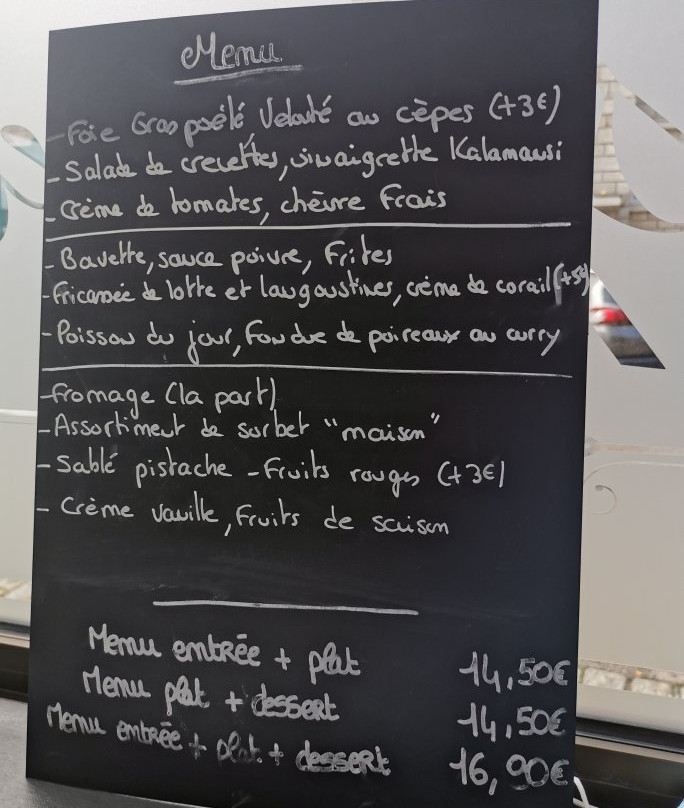 Menu
- Foie Gras poélé Velouté au cèpes (+3€)
- Salade de crevettes, vinaigrette Kalamansi
- Crème de tomates, chèvre Frais
- Bavette, sauce poivre, Frites
- Fricassée de lotte et langoustines, crème de corail (+5€)
- Poisson du jour, Fondue de poireaux au curry
- Fromage (la part)
- Assortiment de sorbet "maison"
- Sablé pistache - Fruits rouges (+3€)
- Crème vanille, Fruits de saison
Menu entrée + plat 14,50€
Menu plat + dessert 14,50€
Menu entrée + plat + dessert 16,90€